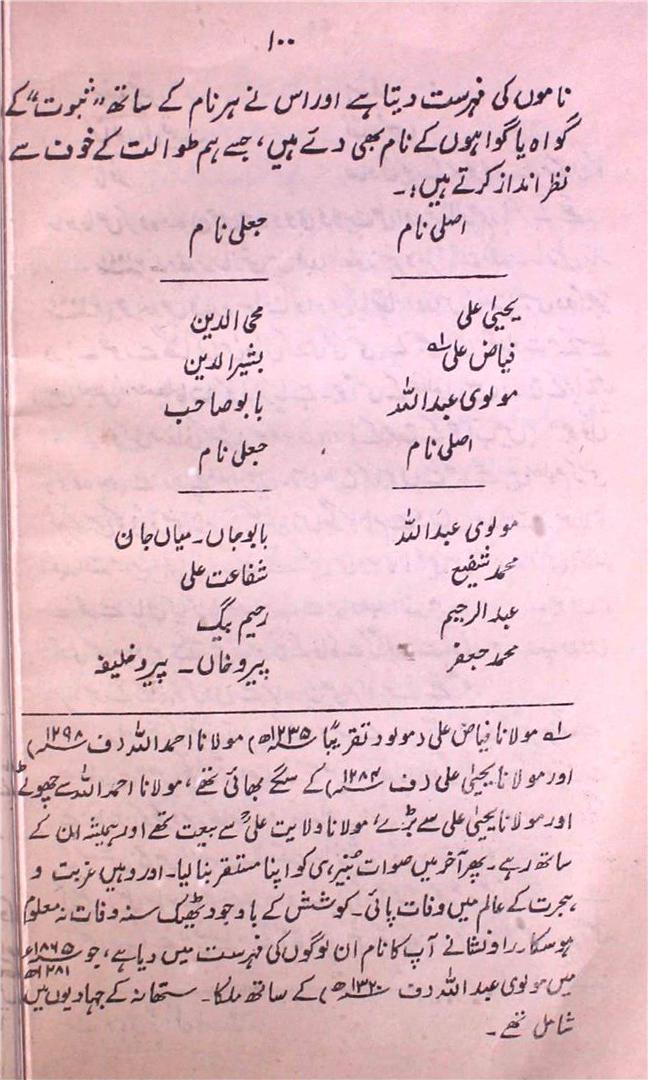 ۱۰۰
ناموں کی فہرست دیتا ہے اور اس نے ہر نام کے ساتھ "ثبوت" کے
گواہ یا گواہوں کے نام بھی دئے ہیں، جسے ہم طوالت کے خوف سے
نظر انداز کرتے ہیں:۔
اصلی نام جعلی نام
یحییٰ علی محی الدین
فیاض علی لہ بشیر الدین
مولوی عبد اللہ بابو صاحب
اصلی نام جعلی نام
مولوی عبد اللہ بابو جاں۔ میاں جان
محمد شفیع شفاعت علی
عبد الرحیم رحیم بیگ
محمد جعفر پیرو خاں۔ پیرو خلیفہ
لہ مولانا فیاض علی (مولود تقریباً ۱۲۳۵ھ) مولانا احمد اللہ (ف ۱۲۹۸ھ)
اور مولانا یحییٰ علی (ف ۱۲۸۴ھ) کے سگے بھائی تھے، مولانا احمد اللہ سے چھوٹے
اور مولانا یحییٰ علی سے بڑے، مولانا ولایت علیؒ سے بیعت تھے اور ہمیشہ ان کے
ساتھ رہے۔ پھر آخر میں صوات بنیر، ہی کو اپنا مستقر بنا لیا۔ اور وہیں غربت و
ہجرت کے عالم میں وفات پائی۔ کوشش کے باوجود ٹھیک سنہ وفات نہ معلوم
ہو سکا۔ راونشا نے آپ کا نام ان لوگوں کی فہرست میں دیا ہے، جو ۱۸۶۵ء ۱۲۸۱ھ
میں مولوی عبد اللہ (ف ۱۳۲۰ھ) کے ساتھ ملکا۔ ستھانہ کے جہادیوں میں
شامل تھے۔